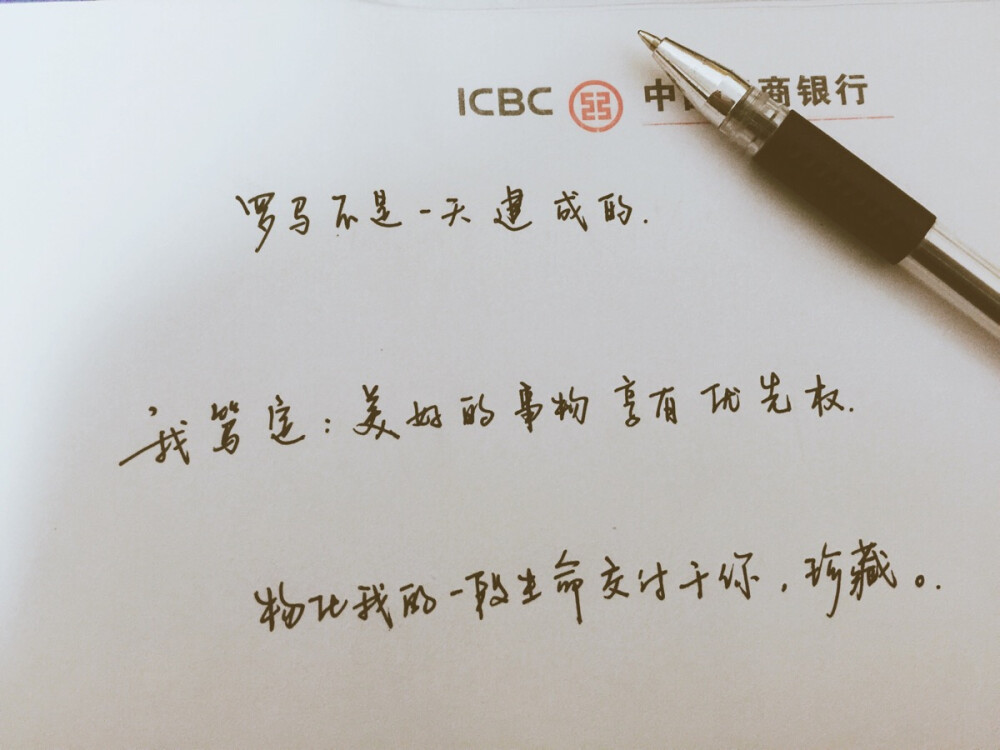 ICBC 中国 商银行
罗马不是一天建成的.
我笃定:美好的事物享有优先权.
物化我的一段生命交付于你,珍藏。.